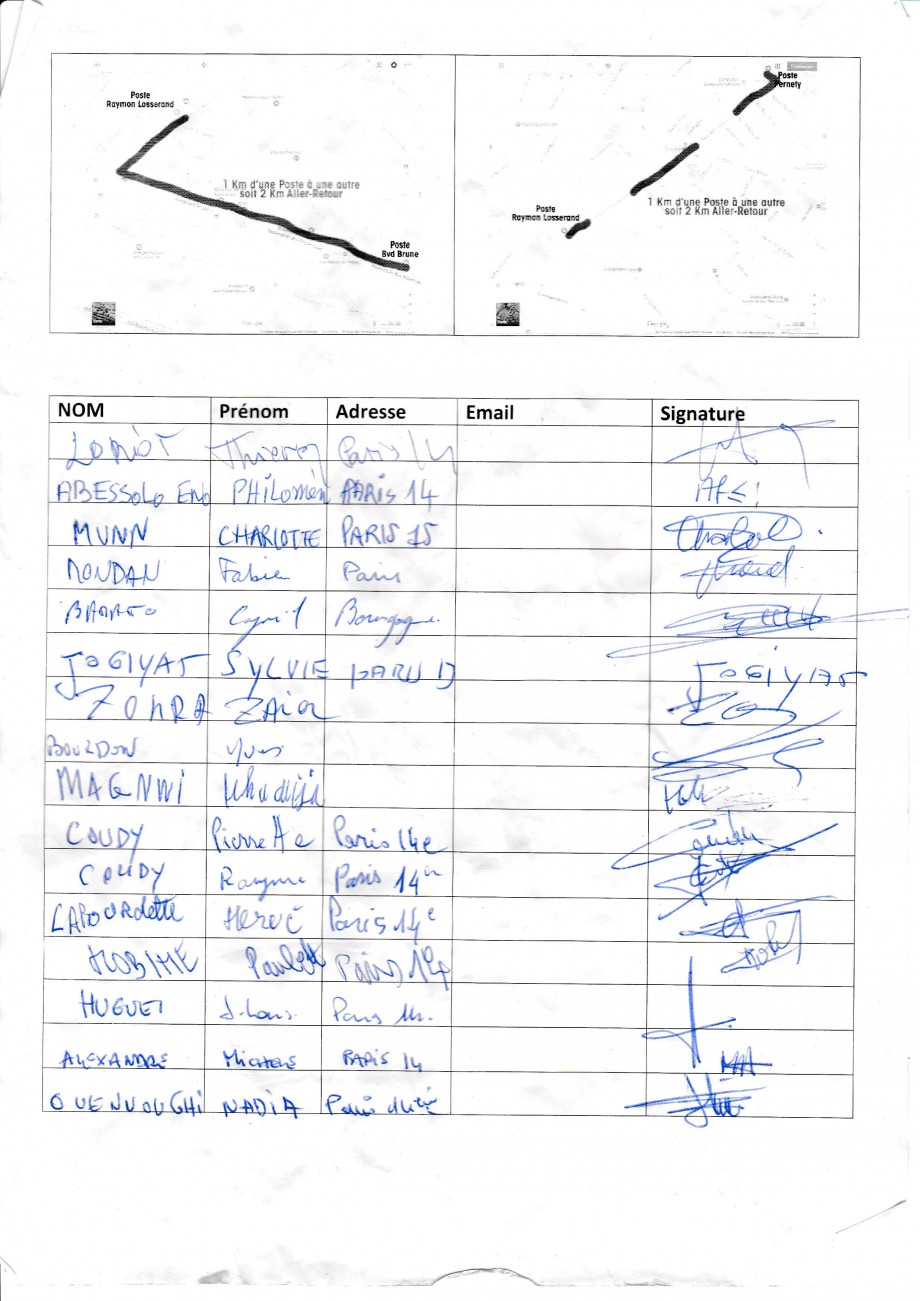 Poste
Raymon Losserand
1 Km d'une Poste à une autre
soit 2 Km Aller-Retour
Poste
Bvd Brune
Poste
Pernety
1 Km d'une Poste à une autre
soit 2 Km Aller-Retour
Poste
Raymon Losserand
NOM Prénom Adresse Email Signature
LORIOT Thierry Paris 14
ABESSOLO ENO PHILOMÈN PARIS 14
MUNN CHARLOTTE PARIS 15
MONDAN Fabien Paris
Cyril Bourgogne
JOGIYAT SYLVIE PARIS JOGIYAT
ZOHRA
BOURDON Yves
MAGNWI Khadija
COUDY Pierrette Paris 14e
COUDY Paris 14
LABOURdette Hervé Paris 14e
Paris 14
HUGUET J-Louis Paris
ALEXANDRE Michele PARIS 14
NADIA Paris